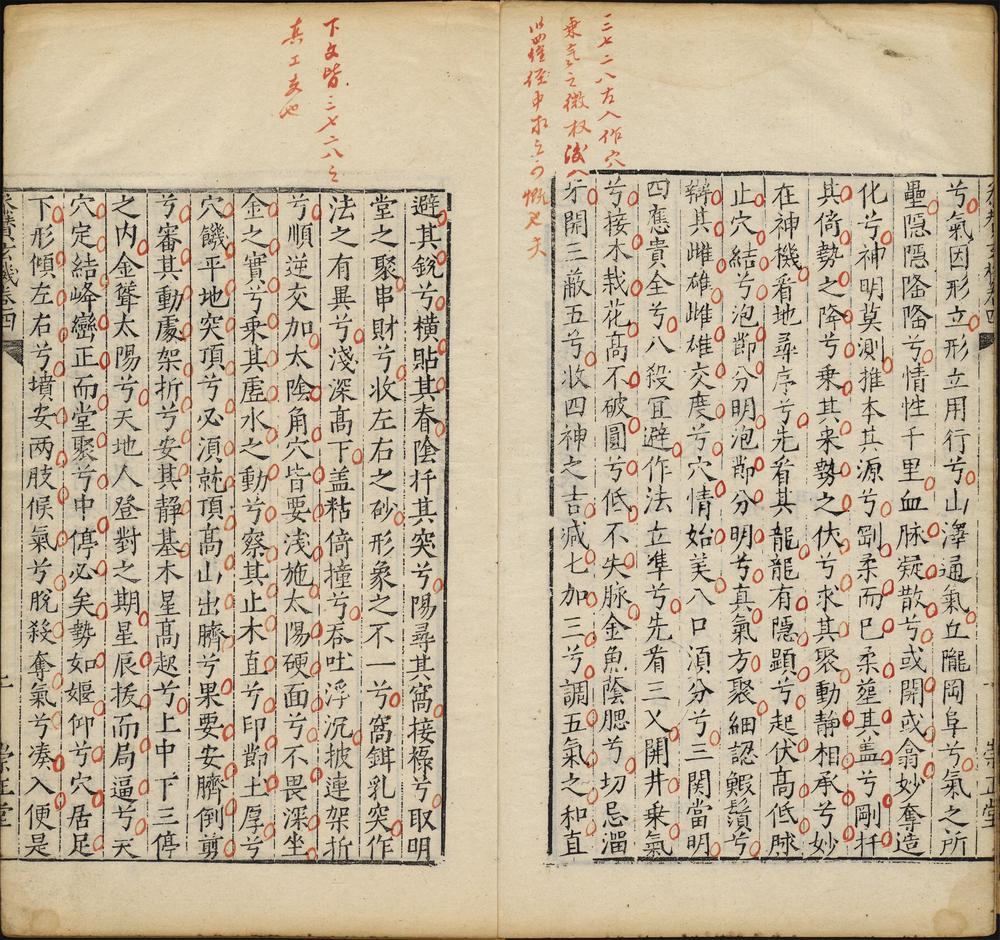 三七二八左入作穴
乘氣之微权淺人
以四羅經中求之可慨也夫
兮氣因形立形立用行兮山澤通氣丘隴岡阜兮氣之所
壘隱隱隆隆兮情性千里血脉凝散兮或開或翕妙奪造
化兮神明莫測推本其源兮剛柔而已柔塟其盖兮剛扦
其倚勢之降兮乘其来勢之伏兮求其聚動靜相承兮妙
在神機看地尋序兮先看其龍龍有隱顕兮起伏高低脉
止穴結兮泡節分明泡節分明兮真氣方聚細認鰕鬚兮
辯其雌雄雌雄交度兮穴情始美八口須分兮三関當明
四應貴全兮八殺冝避作法立凖兮先看三乂開井乗氣
兮接木栽花髙不破圓兮低不失脉金魚蔭腮兮切忌溜
牙開三蔽五兮收四神之吉减七加三兮調五氣之和直
崇正堂
下文皆三七二八之
真工夫也
避其銳兮横貼其脊陰扦其突兮陽尋其窩接禄兮取明
堂之聚串財兮收左右之砂形象之不一兮窩鉺乳突作
法之有異兮淺深髙下盖粘倚撞兮吞吐浮沉披連架折
兮順逆交加太陰角穴皆要浅施太陽硬面兮不畏深坐
金之實兮乗其虚水之動兮察其止木直兮印節土厚兮
穴饑平地突頂兮必須就頂髙山出臍兮果要安臍倒剪
兮審其動處架折兮安其靜基木星髙起兮上中下三停
之内金聳太陽兮天地人登對之期星辰拔而局逼兮天
穴定結峰巒正而堂聚兮中停必矣勢如嫗仰兮穴居足
下形傾左右兮墳安兩肢候氣兮脫殺奪氣兮凑入便是
玄機卷四
崇正堂